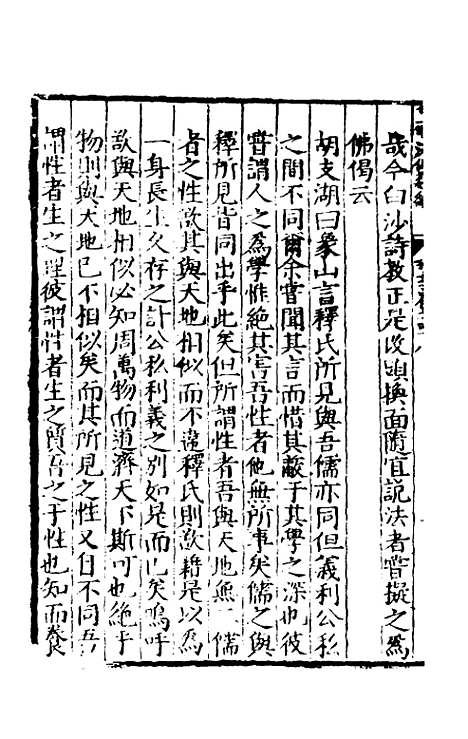 哉今白沙詩教正是改頭換面隨宜說法者嘗擬之為
佛偈云
胡支湖曰象山言釋氏所見與吾儒亦同但義利公私
之間不同爾余嘗聞其言而惜其蔽于其學之深也彼
嘗謂人之為學惟絶其害吾性者他無所事矣儒之與
釋所見皆同出乎此矣但所謂性者吾與天地無二儒
者之性欲其與天地相似而不違釋氏則欲藉是以為
一身長生久存之計公私利義之別如是而已矣嗚呼
欲與天地相似必知周萬物而道濟天下斯可也絶乎
物則與天地已不相似矣而其所見之性又自不同吾
謂性者生之理彼謂性者生之質吾之于性也知而養